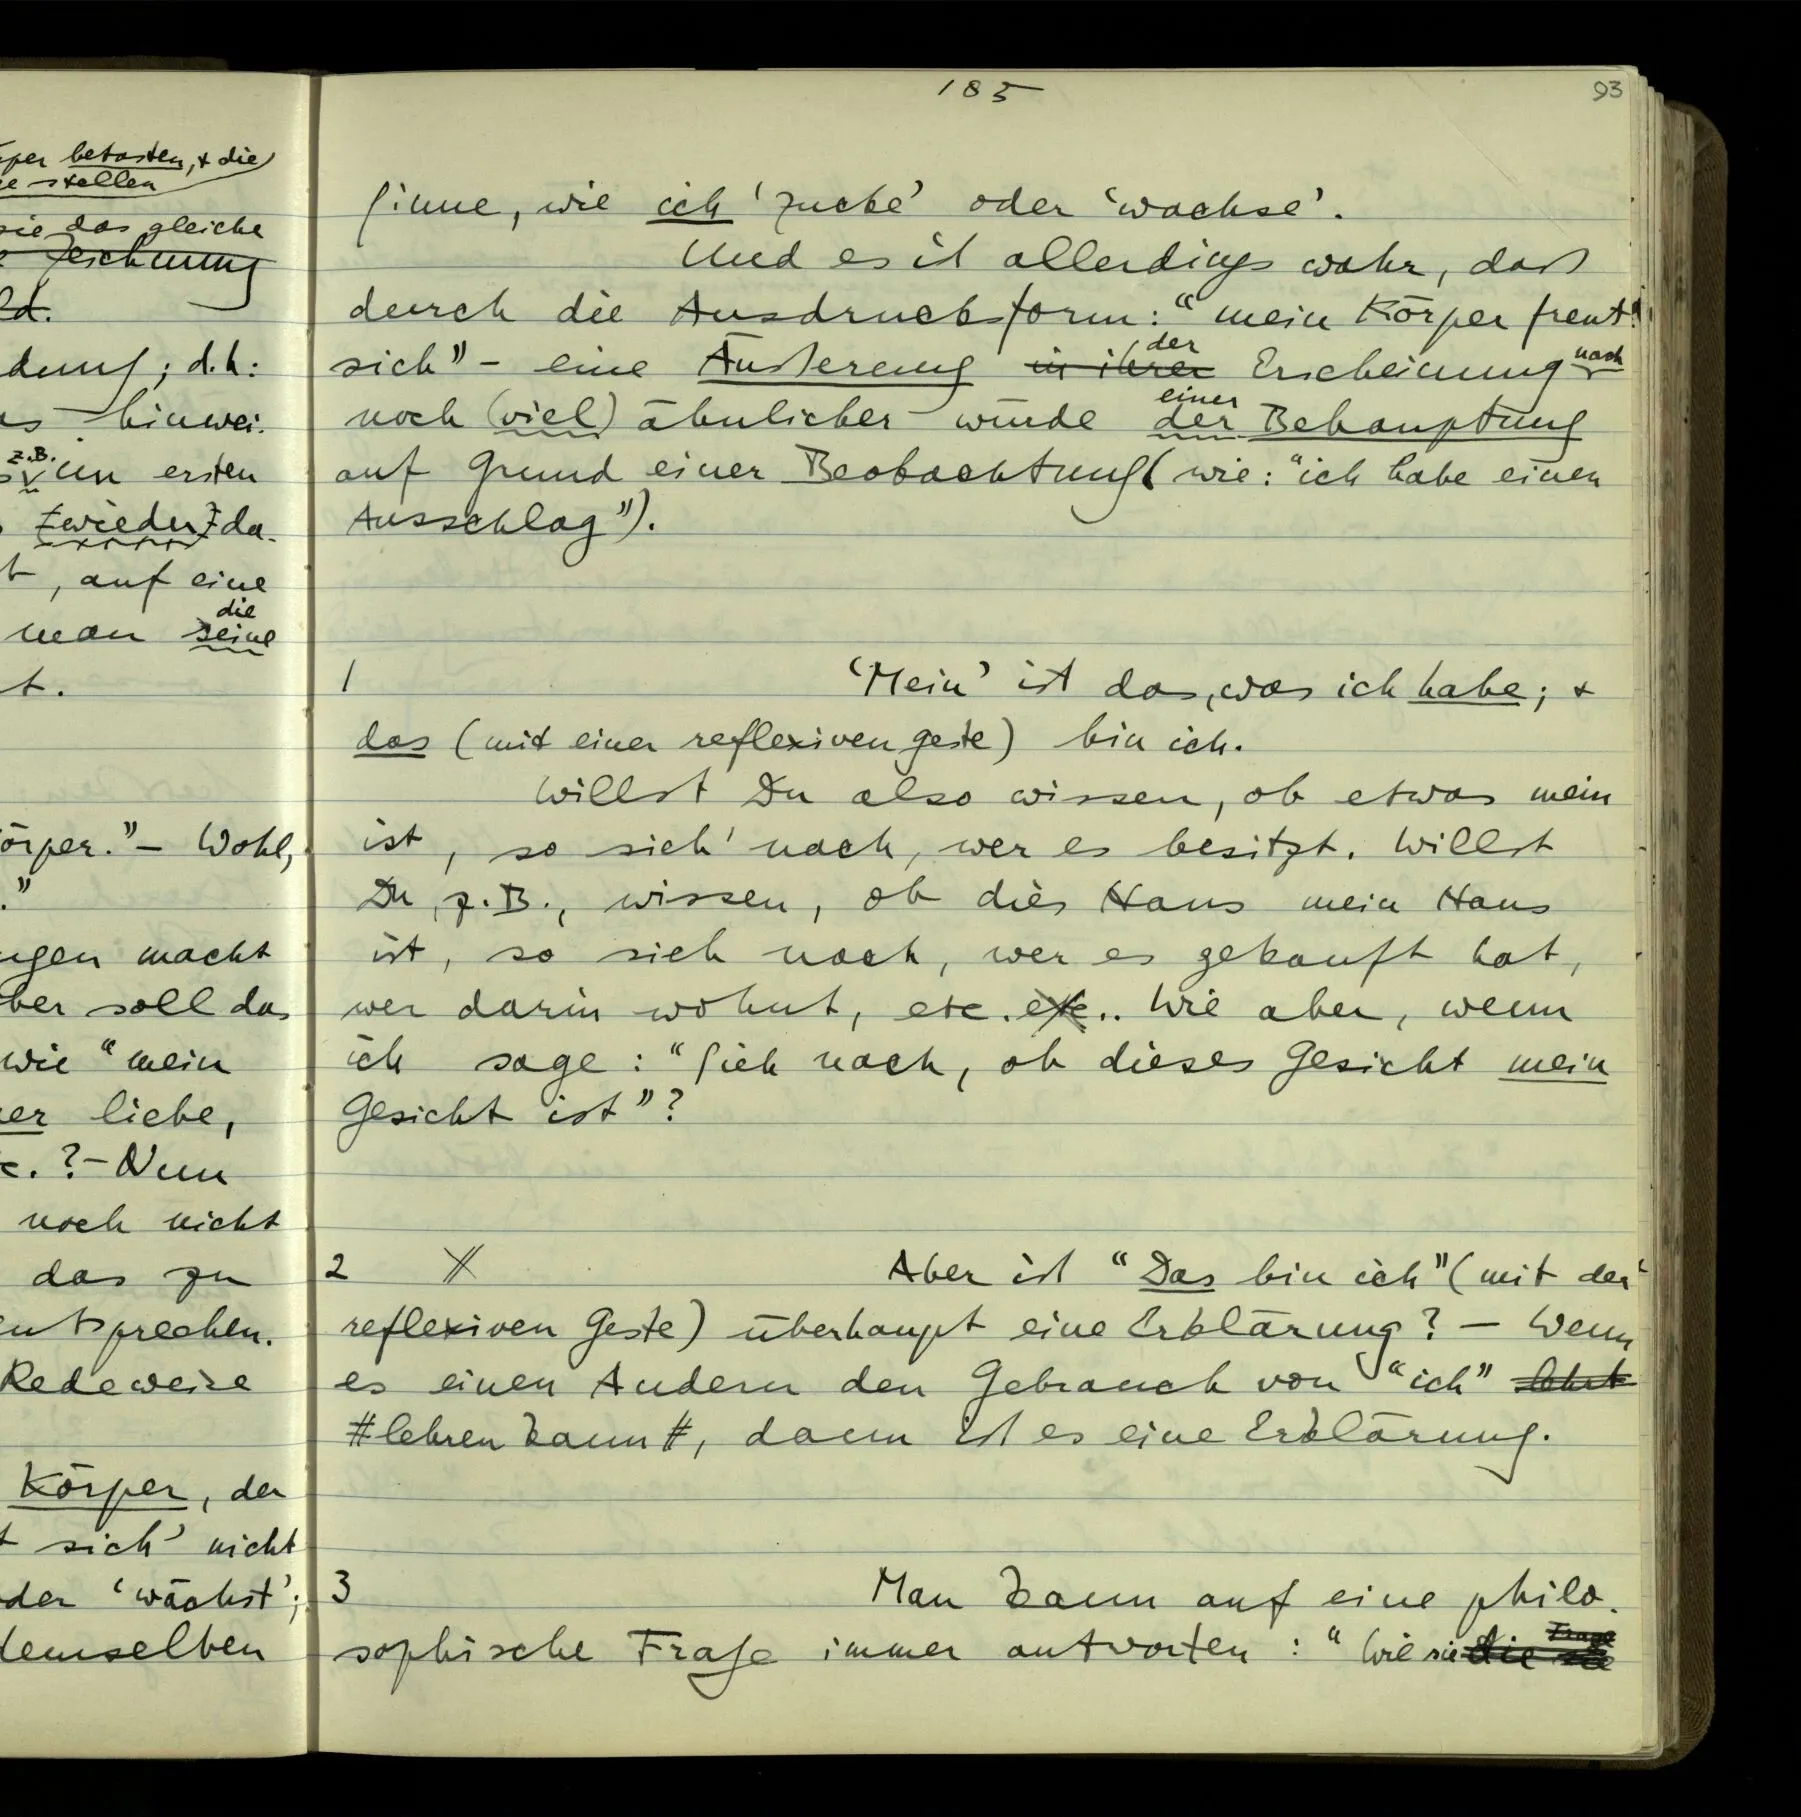 per betasten, + die
e stellen
sie das gleiche
e Zeichnung
ld.
dung; d.h:
as hinwei-
z.B.
im ersten
wieder da-
t, auf eine
die
man seine
t.
örper." – Wohl,
."
ngen macht
ber soll das
wie "mein
er liebe,
c. ? – Nun
noch nicht
das zu
entsprechen.
Redeweise
Körper, der
t sich' nicht
der 'wächst';
demselben
185
93
Sinne, wie ich 'zucke' oder 'wachse'.
Und es ist allerdings wahr, daß
durch die Ausdrucksform: "mein Körper freut
der
sich" – eine Äußerung in ihrer Erscheinung nach
einer
noch (viel) ähnlicher würde der Behauptung
auf Grund einer Beobachtung (wie: "ich habe einen
Ausschlag").
1 'Mein' ist das, was ich habe; +
das (mit einer reflexiven Geste) bin ich.
Willst Du also wissen, ob etwas mein
ist, so sieh' nach, wer es besitzt. Willst
Du, z.B., wissen, ob dies Haus mein Haus
ist, so sieh nach, wer es gekauft hat,
wer darin wohnt, etc. etc.. Wie aber, wenn
ich sage: "Sieh nach, ob dieses Gesicht mein
Gesicht ist"?
2 Aber ist "Das bin ich" (mit der
reflexiven Geste) überhaupt eine Erklärung? – Wenn
es einen Andern den Gebrauch von "ich" lehrt
#lehren kann#, dann ist es eine Erklärung.
3 Man kann auf eine philo-
Frage
sophische Frage immer antworten: "Wie sie die